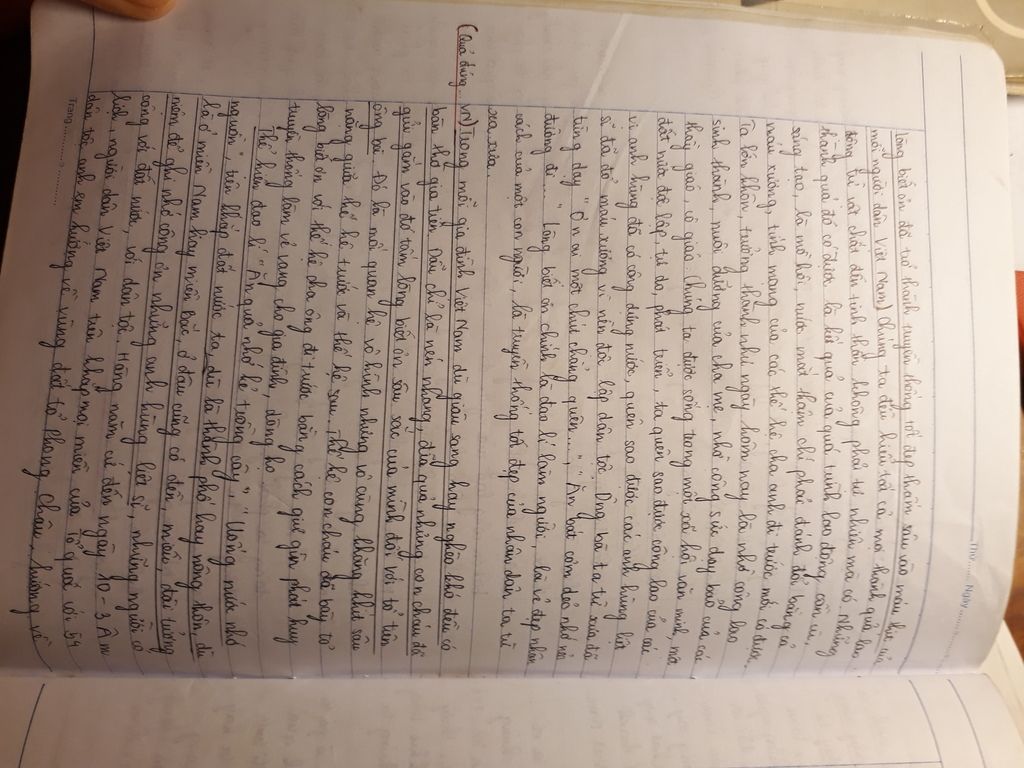 Thứ ........ Ngày ........
lòng biết ơn đã trở thành truyền thống tốt đẹp thấm sâu vào máu thịt của
mỗi người dân Việt Nam) Chúng ta đều hiểu tất cả mọi thành quả lao
động từ vật chất đến tinh thần không phải tự nhiên mà có. Những
thành quả đó có được là kết quả của quá trình lao động cần cù,
sáng tạo, là mồ hôi, nước mắt thậm chí phải đánh đổi bằng cả
máu xương, tính mạng của các thế hệ cha anh đi trước mới có được.
Ta lớn khôn, trưởng thành như ngày hôm nay là nhờ công lao
sinh thành, nuôi dưỡng của cha mẹ, nhờ công sức dạy bảo của các
thầy giáo, cô giáo. Chúng ta được sống trong một xã hội văn minh, một
đất nước độc lập, tự do, phát triển, ta quên sao được công lao của các
vị anh hùng đã có công dựng nước, quên sao được các anh hùng liệt
sĩ đã đổ máu xương vì nền độc lập dân tộc. Ông bà ta từ xưa đã
từng dạy "Ơn ai một chút chẳng quên...", "Ăn bát cơm dẻo nhớ nơi
đường đi..." Lòng biết ơn chính là đạo lí làm người, là vẻ đẹp nhân
cách của mỗi con người, là truyền thống tốt đẹp của nhân dân ta từ
xa xưa.
(Quả đúng vậy) Trong mỗi gia đình Việt Nam dù giàu sang hay nghèo khó đều có
bàn thờ gia tiên. Dẫu chỉ là nén nhang, đĩa quả nhưng con cháu đã
gửi gắm vào đó tấm lòng biết ơn sâu sắc của mình đối với tổ tiên
ông bà. Đó là mối quan hệ vô hình nhưng vô cùng khăng khít sâu
nặng giữa thế hệ trước và thế hệ sau. Thế hệ con cháu đã bày tỏ
lòng biết ơn với thế hệ cha ông đi trước bằng cách giữ gìn phát huy
truyền thống làm vẻ vang cho gia đình, dòng họ
Thể hiện đạo lí "Ăn quả nhớ kẻ trồng cây", "Uống nước nhớ
nguồn", trên khắp đất nước ta, dù là thành phố hay nông thôn, dù
là ở miền Nam hay miền Bắc, ở đâu cũng có đền, miếu, đài tưởng
niệm để ghi nhớ công ơn những anh hùng liệt sĩ, những người có
công với đất nước, với dân tộc. Hằng năm cứ đến ngày 10 - 3 Âm
lịch, người dân Việt Nam trên khắp mọi miền của Tổ quốc với 54
dân tộc anh em hướng về vùng đất tổ Phong Châu, hướng về
Trang ........